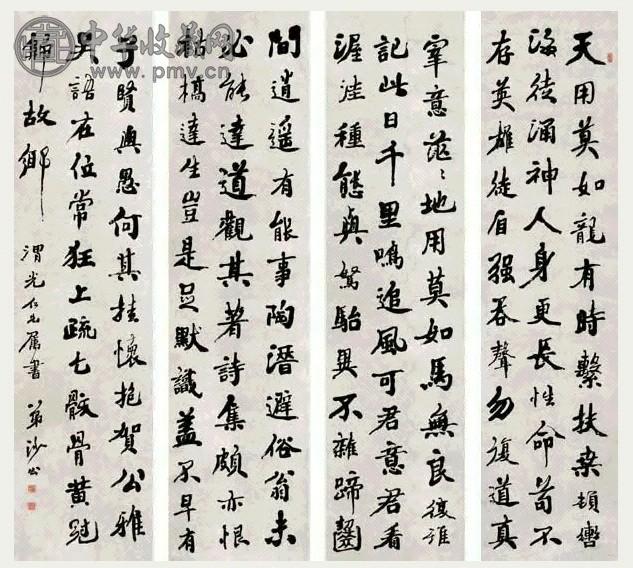 中华收藏网
www.pmv.cn
天用莫如龍有時繫扶桒頓轡
海徒涌神人身更長性命苟不
存英雄徒自强吞聲勿復道真
宰意茫〻地用莫如馬無良復誰
記此日千里鳴追風可君意君看
渥洼種態與駑駘異不雜蹄齧
間逍遥有能事陶潛避俗翁未
必能達道觀其著詩集頗亦恨
枯槁達生豈是足默識盖不早有
子賢與愚何其挂懷抱賀公雅
吴語在位常狂上疏乞骸骨黄冠
歸故鄉
渭光仁兄属書 弟